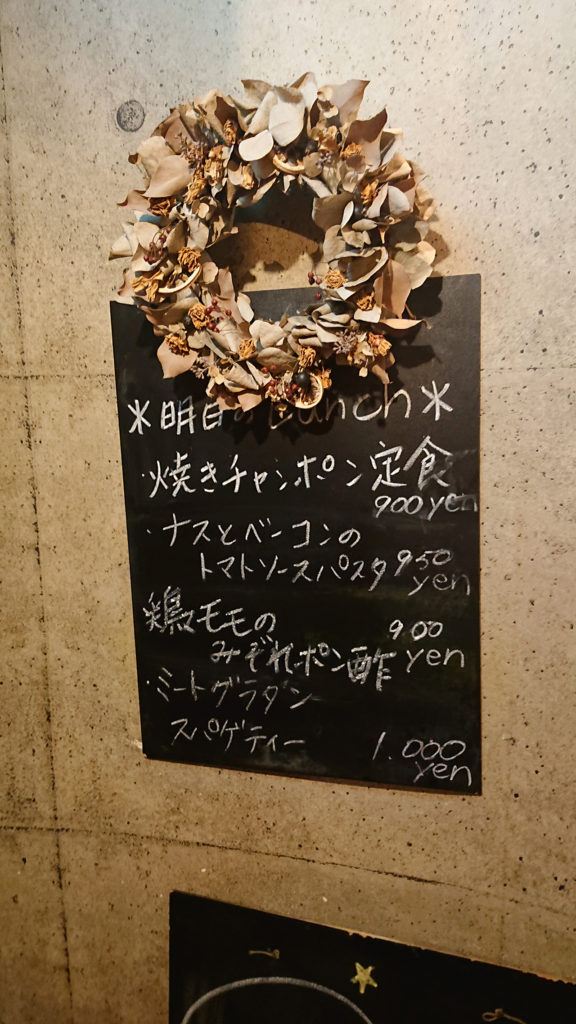 *明日のLunch*
・焼きチャンポン定食
900yen
・ナスとベーコンの
トマトソースパスタ 950
yen
・鶏モモの 900
みぞれポン酢 yen
・ミートグラタン
スパゲティー 1.000
yen